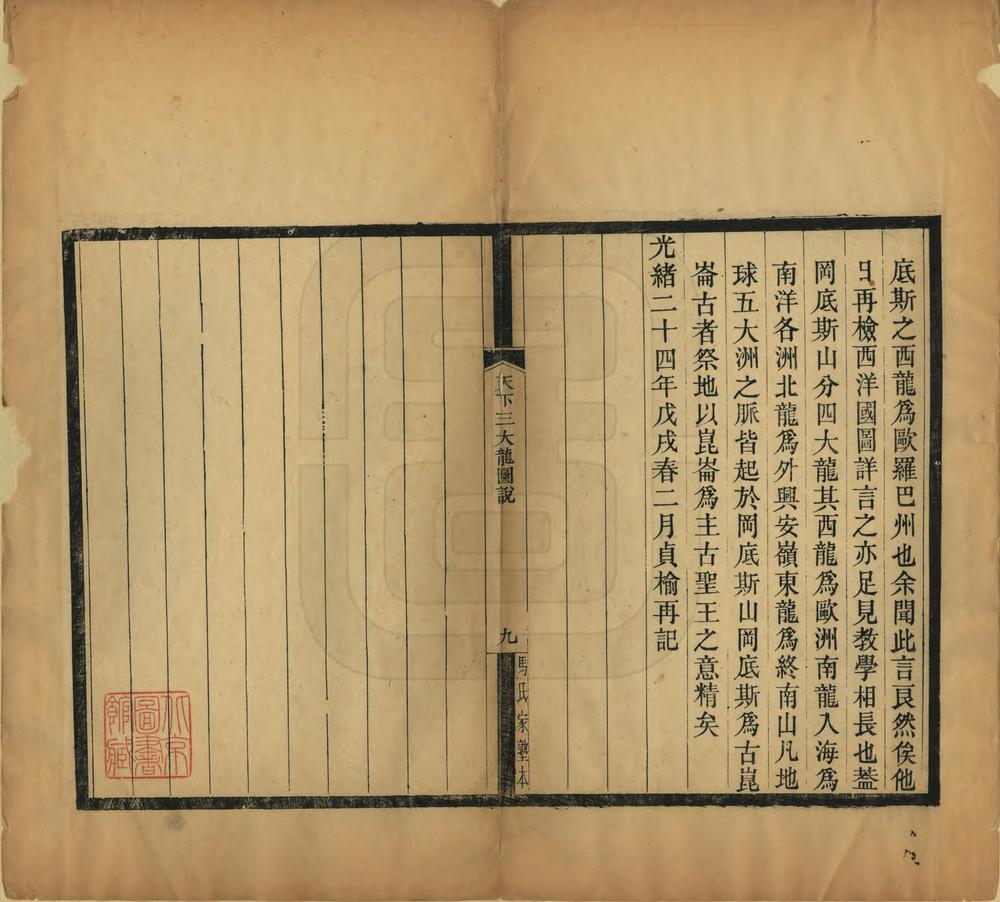 底斯之西龍爲歐羅巴州也余聞此言良然俟他
日再檢西洋國圖詳言之亦足見教學相長也蓋
岡底斯山分四大龍其西龍爲歐洲南龍入海爲
南洋各洲北龍爲外興安嶺東龍爲終南山凡地
球五大洲之脈皆起於岡底斯山岡底斯爲古崑
崙古者祭地以崑崙爲主古聖王之意精矣
光緒二十四年戊戌春二月貞榆再記
天下三大龍圖說
九
氏家塾本
圖書